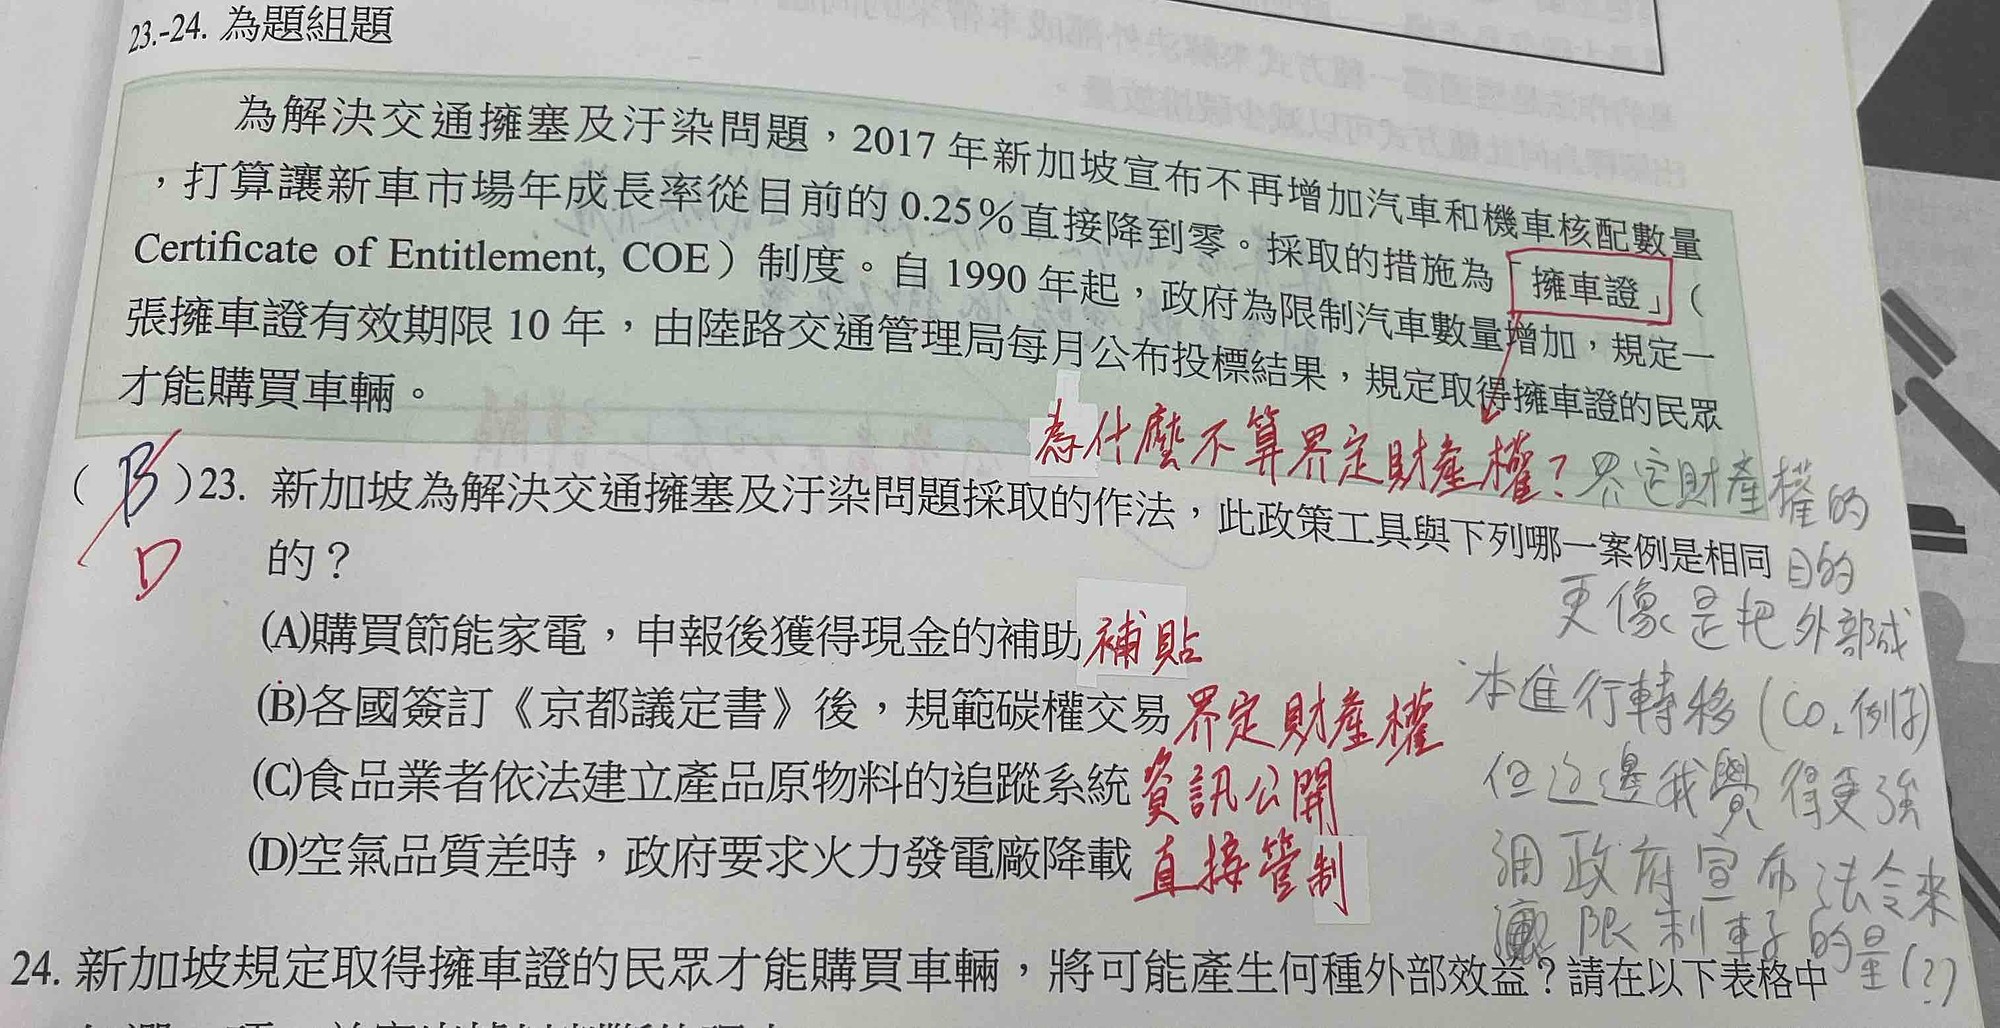 23.-24. 為題組題
為解決交通擁塞及汙染問題，2017 年新加坡宣布不再增加汽車和機車核配數量
，打算讓新車市場年成長率從目前的 0.25％直接降到零。採取的措施為「擁車證」（
Certificate of Entitlement, COE）制度。自 1990 年起，政府為限制汽車數量增加，規定一
張擁車證有效期限 10 年，由陸路交通管理局每月公布投標結果，規定取得擁車證的民眾
才能購買車輛。
為什麼不算界定財產權？
界定財產權的
目的
更像是把外部成
本進行轉移(CO₂例子)
但這邊我覺得更強
調政府宣布法令來
限制車子的量(?)
( B )23. 新加坡為解決交通擁塞及汙染問題採取的作法，此政策工具與下列哪一案例是相同
D
的？
(A)購買節能家電，申報後獲得現金的補助 補貼
(B)各國簽訂《京都議定書》後，規範碳權交易 界定財產權
(C)食品業者依法建立產品原物料的追蹤系統 資訊公開
(D)空氣品質差時，政府要求火力發電廠降載 直接管制
24. 新加坡規定取得擁車證的民眾才能購買車輛，將可能產生何種外部效益？請在以下表格中